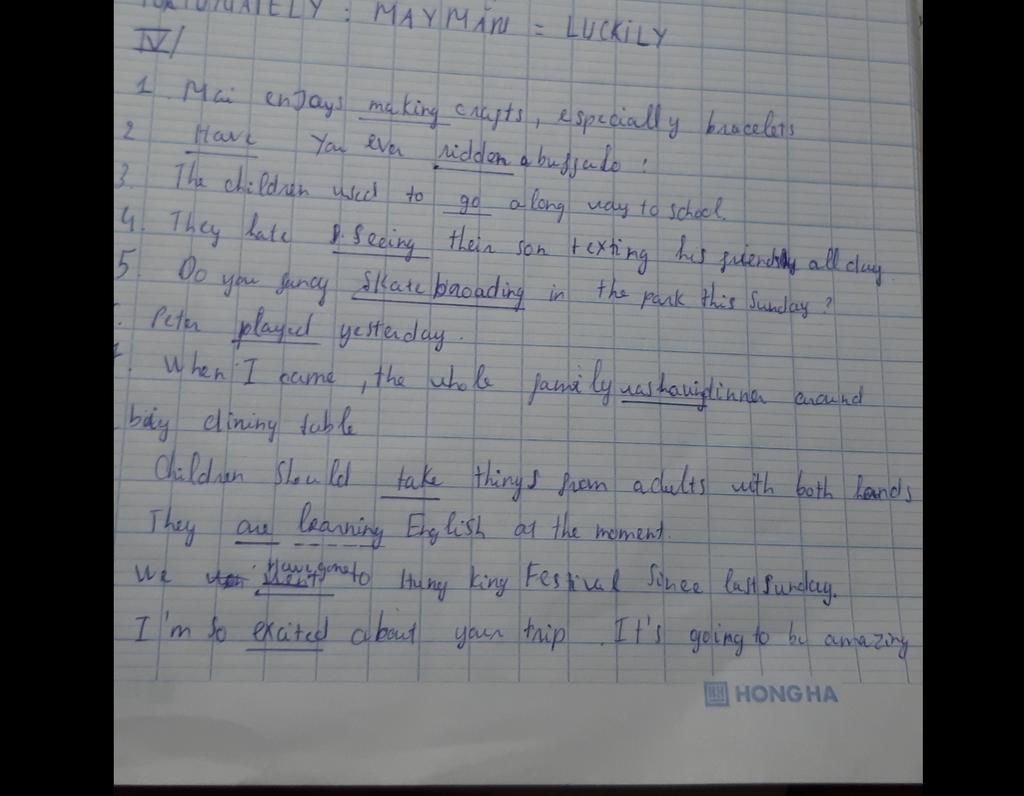 FORTUNATELY : MAY MẮN = LUCKILY
IV/
1. Mai enjoys making crafts, especially bracelets
2 Have You ever ridden a buffalo ?
3. The children used to go a long way to school.
4. They hate seeing their son texting his friends all day
5. Do you fancy Skate broading in the park this Sunday ?
. Peter played yesterday.
. When I came, the whole family was having dinner around
dining table
Children Should take things from adults with both hands
They are learning English at the moment.
We have gone to Hung king Festival Since last Sunday.
I'm so excited about your trip. It's going to be amazing
HONG HA